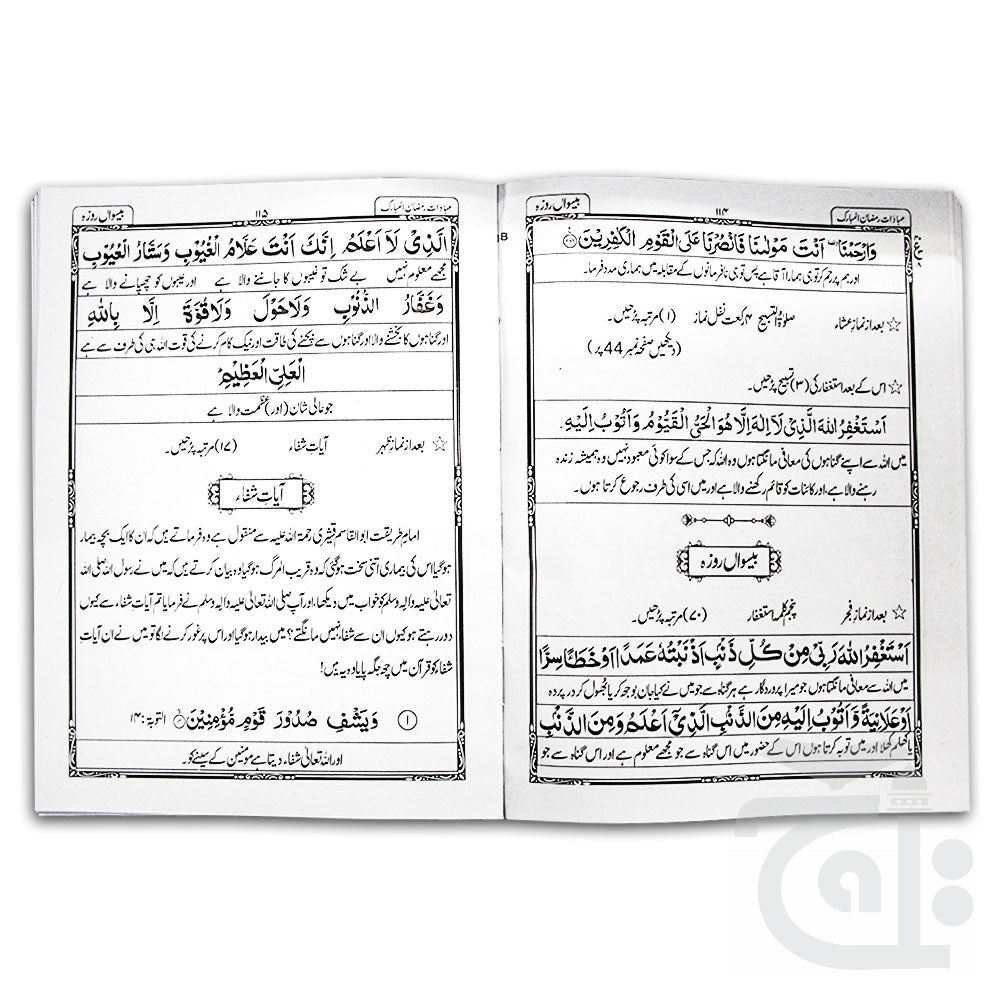 عبادات رمضان المبارک
۱۱۴
بیسواں روزہ
وَارْحَمْنَا اَنْتَ مَوْلٰىنَا فَانْصُرْنَا عَلَى الْقَوْمِ الْكٰفِرِيْنَ
اور ہم پر رحم کر تو ہی ہمارا آقا ہے پس تو ہی نافرمانوں کے مقابلہ میں ہماری مدد فرما۔
☆ بعد از نماز عشاء صلوٰۃ التسبیح ۴ رکعت نفل نماز (۱) مرتبہ پڑھیں۔
(دیکھیں صفحہ نمبر 44 پر)
☆ اس کے بعد استغفار کی (۳) تسبیح پڑھیں۔
اَسْتَغْفِرُ اللهَ الَّذِىْ لَآ اِلٰهَ اِلَّا هُوَ الْحَىُّ الْقَيُّوْمُ وَاَتُوْبُ اِلَيْهِ۔
میں اللہ سے اپنے گناہوں کی معافی مانگتا ہوں وہ اللہ کہ جس کے سوا کوئی معبود نہیں وہ ہمیشہ زندہ
رہنے والا ہے، اور کائنات کو قائم رکھنے والا ہے اور میں اسی کی طرف رجوع کرتا ہوں۔
بیسواں روزہ
☆ بعد از نماز فجر پنجم کلمہ استغفار (۷۰) مرتبہ پڑھیں۔
اَسْتَغْفِرُ اللهَ رَبِّىْ مِنْ كُلِّ ذَنْبٍ اَذْنَبْتُهٗ عَمَدًا اَوْ خَطَأً سِرًّا
میں اللہ سے معافی مانگتا ہوں جو میرا پروردگار ہے ہر گناہ سے جو میں نے کیا جان بوجھ کر یا بھول کر در پردہ
اَوْ عَلَانِيَةً وَّ اَتُوْبُ اِلَيْهِ مِنَ الذَّنْبِ الَّذِىْ اَعْلَمُ وَ مِنَ الذَّنْبِ
یا کھلم کھلا اور میں توبہ کرتا ہوں اس کے حضور میں اس گناہ سے جو مجھے معلوم ہے اور اس گناہ سے جو
عبادات رمضان المبارک
۱۱۵
بیسواں روزہ
الَّذِىْ لَآ اَعْلَمُ اِنَّكَ اَنْتَ عَلَّامُ الْغُيُوْبِ وَسَتَّارُ الْعُيُوْبِ
مجھے معلوم نہیں بے شک تو غیبوں کا جاننے والا ہے اور عیبوں کو چھپانے والا ہے
وَغَفَّارُ الذُّنُوْبِ وَلَاحَوْلَ وَلَاقُوَّةَ اِلَّا بِاللهِ
اور گناہوں کا بخشنے والا اور گناہوں سے بچنے کی طاقت اور نیک کام کرنے کی قوت اللہ ہی کی طرف سے ہے
الْعَلِىِّ الْعَظِيْمِ
جو عالی شان (اور) عظمت والا ہے
☆ بعد از نماز ظہر آیات شفاء (۱۷) مرتبہ پڑھیں۔
آیات شفاء
امام طریقت ابوالقاسم قشیری رحمۃ اللہ علیہ سے منقول ہے وہ فرماتے ہیں کہ ان کا ایک بچہ بیمار
ہو گیا اس کی بیماری اتنی سخت ہو گئی کہ وہ قریب المرگ ہو گیا وہ بیان کرتے ہیں کہ میں نے رسول اللہ صلی اللہ
تعالیٰ علیہ والہ وسلم کو خواب میں دیکھا، اور آپ صلی اللہ تعالیٰ علیہ والہ وسلم نے فرمایا تم آیات شفاء سے کیوں
دور رہتے ہو کیوں ان سے شفاء نہیں مانگتے؟ میں بیدار ہو گیا اور اس پر غور کرنے لگا تو میں نے ان آیات
شفاء کو قرآن میں چھ جگہ پایا وہ یہ ہیں!
۱ وَيَشْفِ صُدُوْرَ قَوْمٍ مُّؤْمِنِيْنَ التوبۃ: ۱۴
اور اللہ تعالیٰ شفاء دیتا ہے مومنین کے سینے کو۔